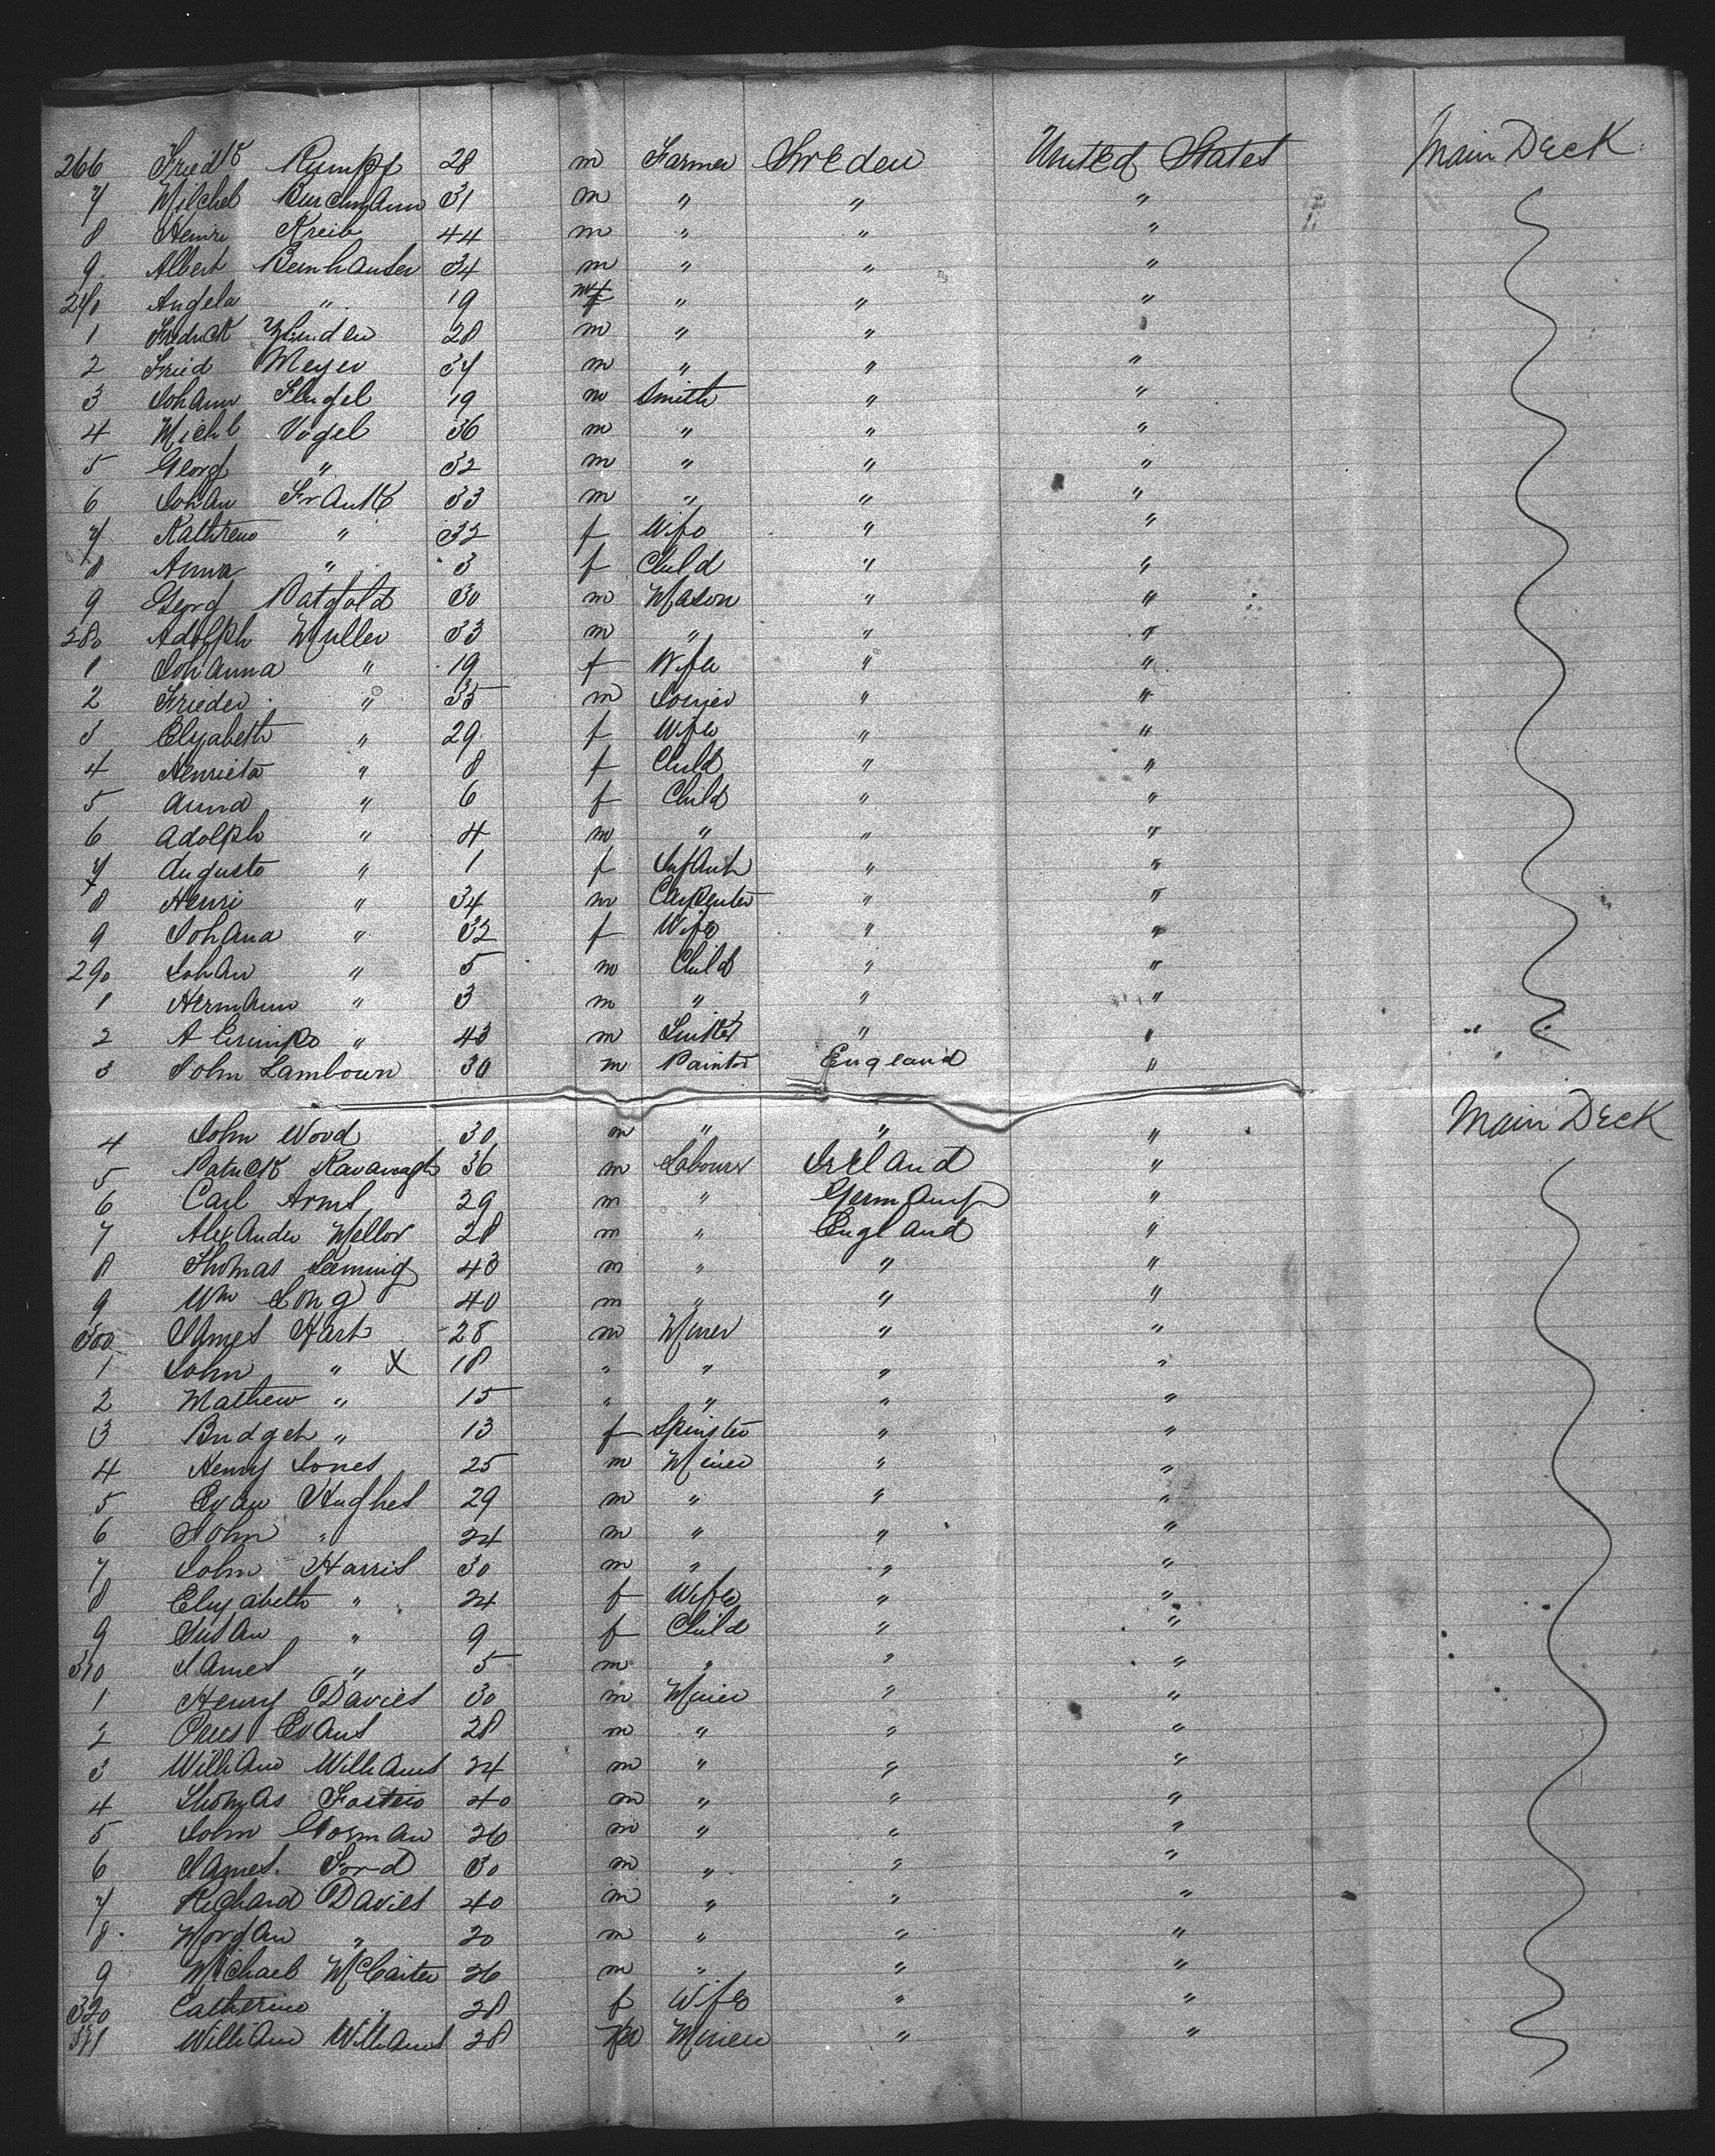 266 Fried^k Rumpf 28 m Farmer Sweden United States Main Deck
7 Michel Buschmann 31 m " " "
8 Henri Kreib 44 m " " "
9 Albert Bernhauser 34 m " " "
270 Angela " 19 f " " "
1 Fredrick 28 m " " "
2 Fried Meyer 34 m " " "
3 Johann Flugel 19 m Smith " "
4 Michl Vogel 36 m " " "
5 Georg " 32 m " " "
6 Johan Frank 33 m " " "
7 " 32 f Wife " "
8 Anna " 3 f Child " "
9 Georg 30 m Mason " "
280 Adolph Muller 33 m " " "
1 Johanna " 19 f Wife " "
2 Frieder " 35 m " "
3 Elyabeth " 29 f Wife " "
4 Henrieta " 8 f Child " "
5 Anna " 6 f Child " "
6 Adolph " 4 m " " "
7 Augusto " 1 f Infant " "
8 Henri " 34 m Carpenter " "
9 Johana " 32 f Wife " "
290 Johan " 5 m Child " "
1 Hermann " 3 m " " "
2 A " 43 m " "
3 John Lambourn 30 m Painter England "
4 John Wood 30 m " " " Main Deck
5 Patrick Kavanagh 36 m Labourer Ireland "
6 Carl Arms 29 m " Germany "
7 Alexander Mellor 28 m " England "
8 Thomas Leeming 43 m " " "
9 Wm Long 40 m " " "
300 James Hart 28 m Miner " "
1 John " X 18 " " " "
2 Mathew " 15 " " " "
3 Bridget " 13 f Spinster " "
4 Henry Jones 25 m Miner " "
5 Evan Hughes 29 m " " "
6 John " 24 m " " "
7 John Harris 30 m " " "
8 Elizabeth " 24 f Wife " "
9 Susan " 9 f Child " "
310 James " 5 m " " "
1 Henry Davies 30 m Miner " "
2 Rees Evans 28 m " " "
3 William Williams 24 m " " "
4 Thomas Foster 40 m " " "
5 John Gorman 26 m " " "
6 James Ford 30 m " " "
7 Richard Davies 40 m " " "
8 Morgan " 20 m " " "
9 Michael McCarter 26 m " " "
320 Catherine 28 f Wife " "
321 William Williams 28 m Miner " "